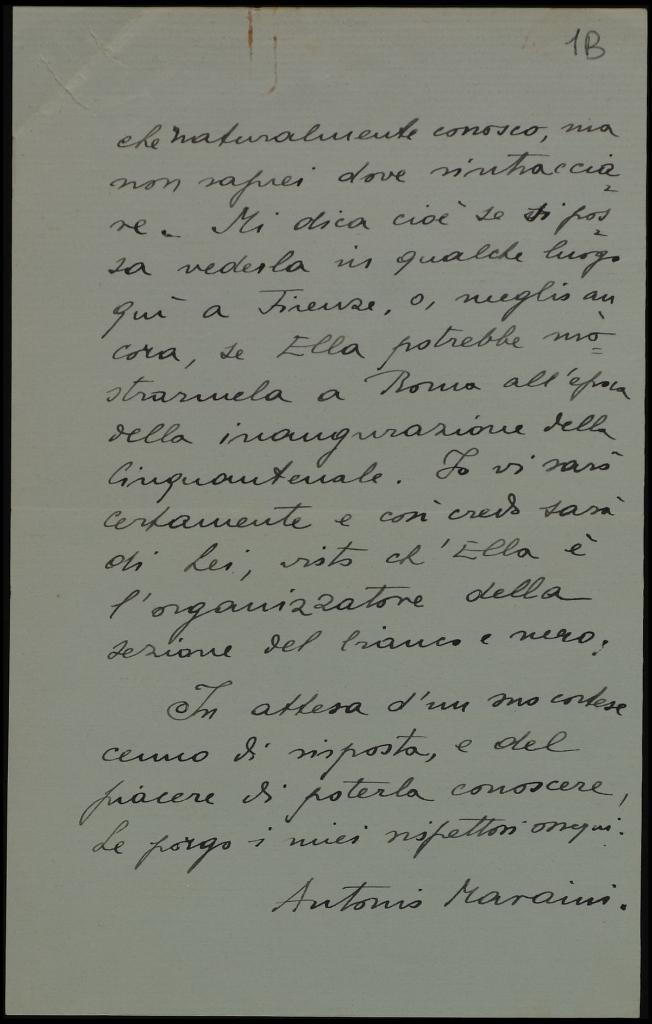 1B
che naturalmente conosco, ma
non saprei dove rintraccia=
re. Mi dica cioè se si pos=
sa vederla in qualche luogo
qui a Firenze, o, meglio an
cora, se Ella potrebbe mo=
strarmela a Roma all'epoca
della inaugurazione della
Cinquantenale. Io vi sarò
certamente e così credo sarà
di Lei, visto ch'Ella è
l'organizzatore della
sezione del bianco e nero.
In attesa d'un suo cortese
cenno di risposta, e del
piacere di poterla conoscere,
Le porgo i miei rispettosi ossequi.
Antonio Maraini.